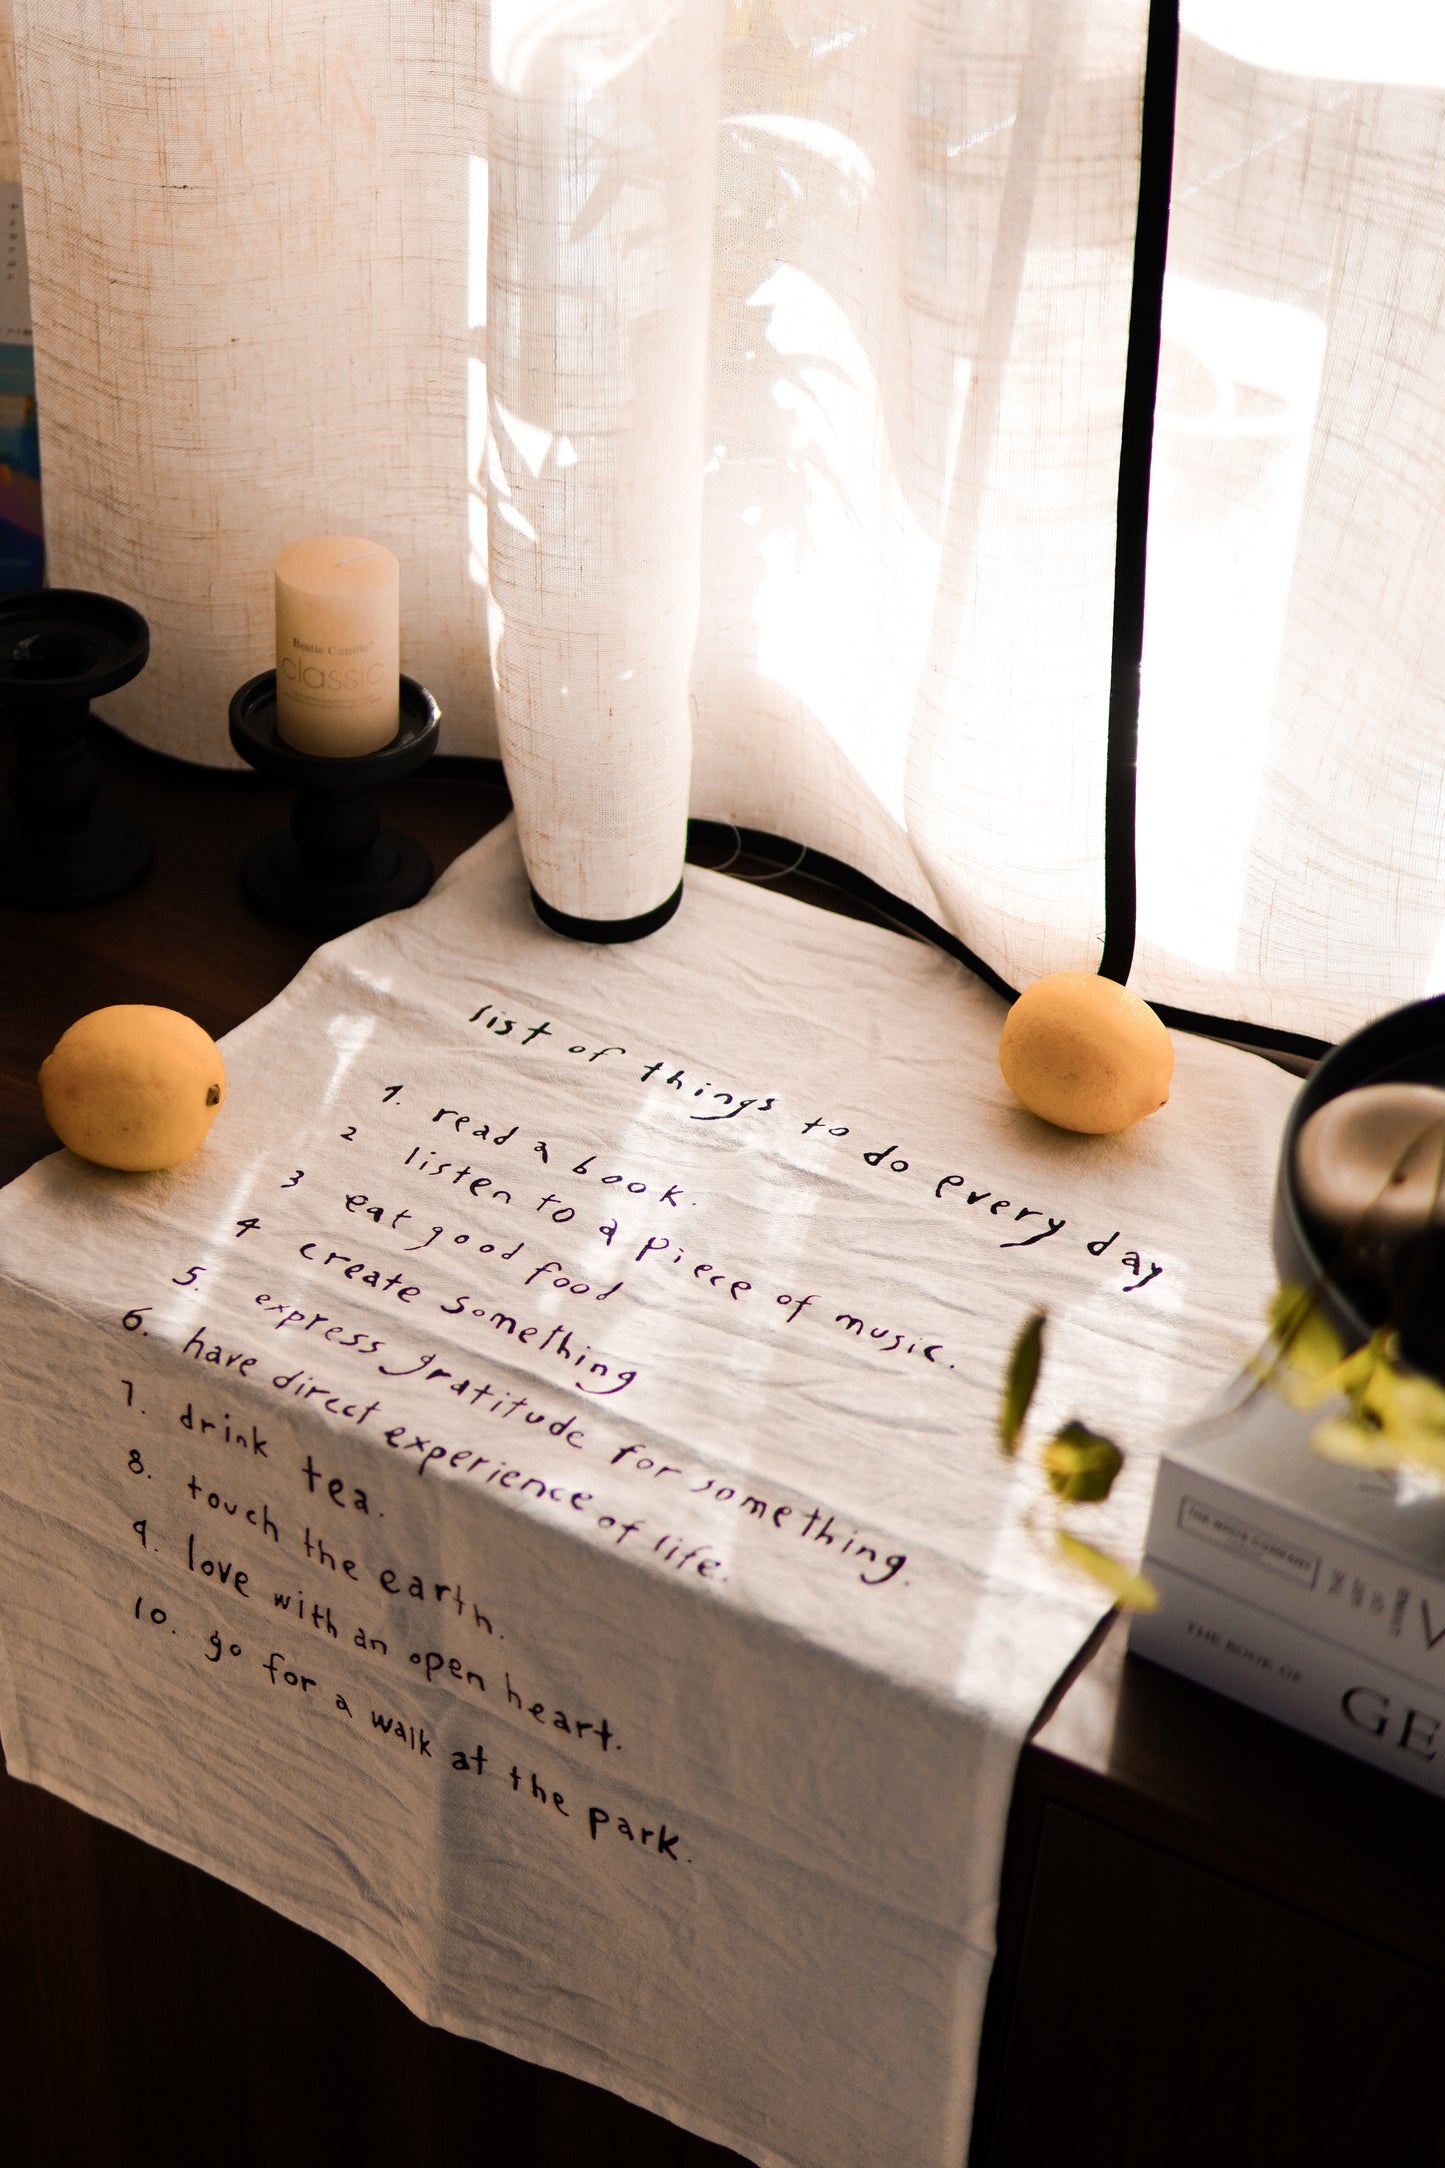 Bestie Candle®
classic
list of things to do every day
1. read a book.
2 listen to a piece of music.
3 eat good food
4 create something
5. express gratitude for something.
6. have direct experience of life.
7. drink tea.
8. touch the earth.
9. love with an open heart.
10. go for a walk at the park.
THE BOOK OF
GE